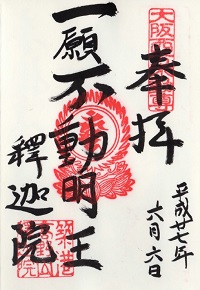 奉拝
平成廿七年
六月六日
一願不動明王
釋迦院